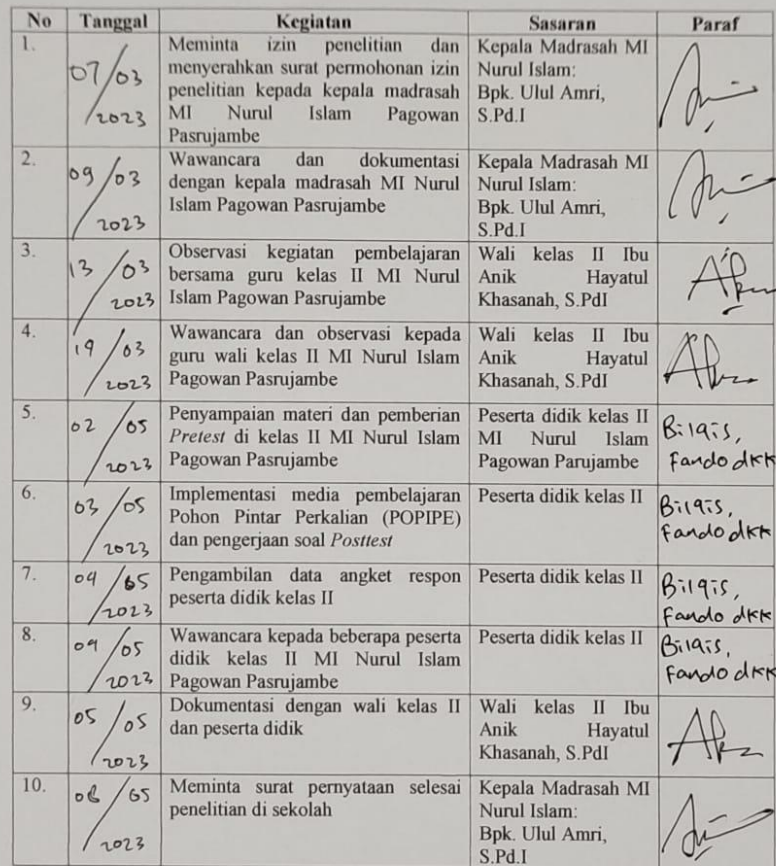 No Tanggal Kegiatan Sasaran Paraf
1.
07/03
2023
Meminta izin penelitian dan
menyerahkan surat permohonan izin
penelitian kepada kepala madrasah
MI Nurul Islam Pagowan
Pasrujambe
Kepala Madrasah MI
Nurul Islam:
Bpk. Ulul Amri,
S.Pd.I
2.
09/03
2023
Wawancara dan dokumentasi
dengan kepala madrasah MI Nurul
Islam Pagowan Pasrujambe
Kepala Madrasah MI
Nurul Islam:
Bpk. Ulul Amri,
S.Pd.I
3.
13/03
2023
Observasi kegiatan pembelajaran
bersama guru kelas II MI Nurul
Islam Pagowan Pasrujambe
Wali kelas II Ibu
Anik Hayatul
Khasanah, S.PdI
4.
19/03
2023
Wawancara dan observasi kepada
guru wali kelas II MI Nurul Islam
Pagowan Pasrujambe
Wali kelas II Ibu
Anik Hayatul
Khasanah, S.PdI
5.
02/05
2023
Penyampaian materi dan pemberian
Pretest di kelas II MI Nurul Islam
Pagowan Pasrujambe
Peserta didik kelas II
MI Nurul Islam
Pagowan Parujambe
Bilqis,
Fando dkk
6.
03/05
2023
Implementasi media pembelajaran
Pohon Pintar Perkalian (POPIPE)
dan pengerjaan soal Posttest
Peserta didik kelas II
Bilqis,
Fando dkk
7.
04/05
2023
Pengambilan data angket respon
peserta didik kelas II
Peserta didik kelas II
Bilqis,
Fando dkk
8.
04/05
2023
Wawancara kepada beberapa peserta
didik kelas II MI Nurul Islam
Pagowan Pasrujambe
Peserta didik kelas II
Bilqis,
Fando dkk
9.
05/05
2023
Dokumentasi dengan wali kelas II
dan peserta didik
Wali kelas II Ibu
Anik Hayatul
Khasanah, S.PdI
10.
08/05
2023
Meminta surat pernyataan selesai
penelitian di sekolah
Kepala Madrasah MI
Nurul Islam:
Bpk. Ulul Amri,
S.Pd.I